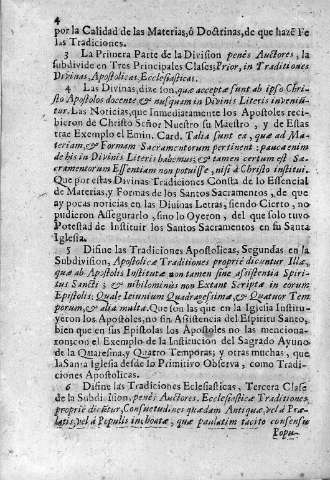 4
por la Calidad de las Materias, ó Doctrinas, de que hazẽ Fe
las Tradiciones.
3 La Primera Parte de la Division penés Auctores, la
subdivide en Tres Principales Clases; Prior, in Traditiones
Divinas, Apostolicas, Ecclesiasticas.
4 Las Divinas, dize son, quæ acceptæ sunt ab ipso Chri-
sto Apostolos docente, & nusquam in Divinis Literis inveniũ-
tur. Las Noticias, que Inmediatamente los Apostoles reci-
bieron de Christo Señor Nuestro su Maestro, y de Estas
trae Exemplo el Emin. Card. Talia sunt ea, quæ ad Ma-
teriam, & Formam Sacramentorum pertinent: pauca enim
de his in Divinis Literis habemus; & tamen certum est Sa-
cramentorum Essentiam non potuisse, nisi á Christo institui.
Que por estas Divinas Tradiciones Consta de lo Essencial
de Materias, y Formas de los Santos Sacramentos, de que
ay pocas noticias en las Divinas Letras, siendo Cierto, no
pudieron Assegurarlo, sino lo Oyeron, del que solo tuvo
Potestad de Instituir los Santos Sacramentos en su Santa
Iglesia.
5 Difine las Tradiciones Apostolicas, Segundas en la
Subdivision, Apostolicæ Traditiones proprié dicuntur Illæ,
quæ ab Apostolis Institutæ non tamen sine assistentia Spiri-
tus Sancti; & nihilominùs non Extant Scriptæ in eorum
Epistolis: Quale Ieiunium Quadragesimæ, & Quatuor Tem
porum, & alia multa. Que son las que en la Iglesia Institu-
yeron los Apostoles, no sin Assistencia del Espiritu Santo,
bien que en sus Epistolas los Apostoles no las menciona-
ron; con el Exemplo de la Institucion del Sagrado Ayuno
de la Quaresma, y Quatro Temporas; y otras muchas, que
la Santa Iglesia desde lo Primitivo Observa, como Tradi-
ciones Apostolicas.
6 Difine las Tradiciones Eclesiasticas, Tercera Clase
de la Subdivision, penés Auctores. Ecclesiasticæ Traditiones
proprié dicũtur, Consuetudines quædam Antiquæ, vel á Præ-
latis, vel á Populis inchoatæ, quæ paulatim tacito consensu
Popu-